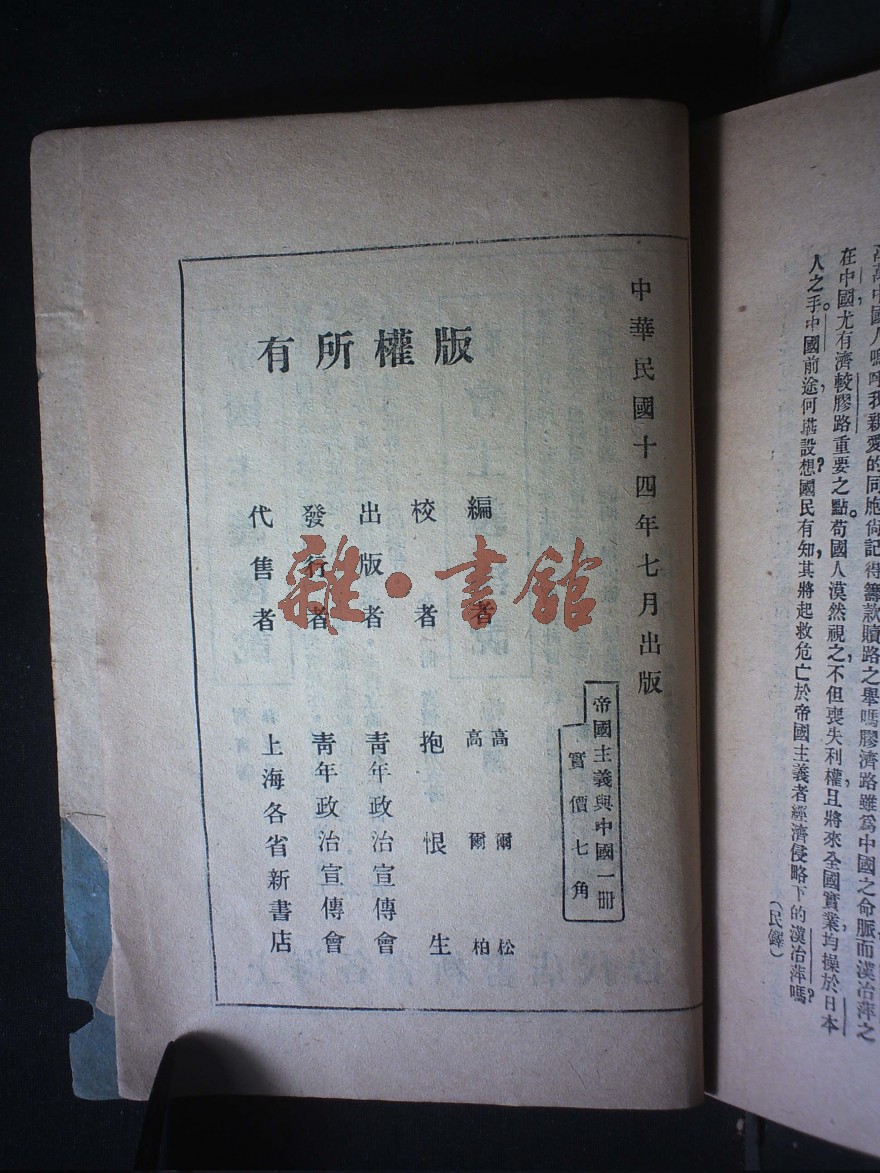 在中國尤有濟較膠路重要之點。苟國人漠然視之、不但喪失利權、且將來全國實業、均操於日本
人之手。中國前途、何堪設想？國民有知、其將起救危亡於帝國主義者經濟侵略下的漢冶萍嗎？
（民鐸）
中華民國十四年七月出版
帝國主義與中國一册
實價七角
版權所有
編者 高爾松 高爾柏
校者 抱恨生
出版者 青年政治宣傳會
發行者 青年政治宣傳會
代售者 上海各省新書店
雜·書館